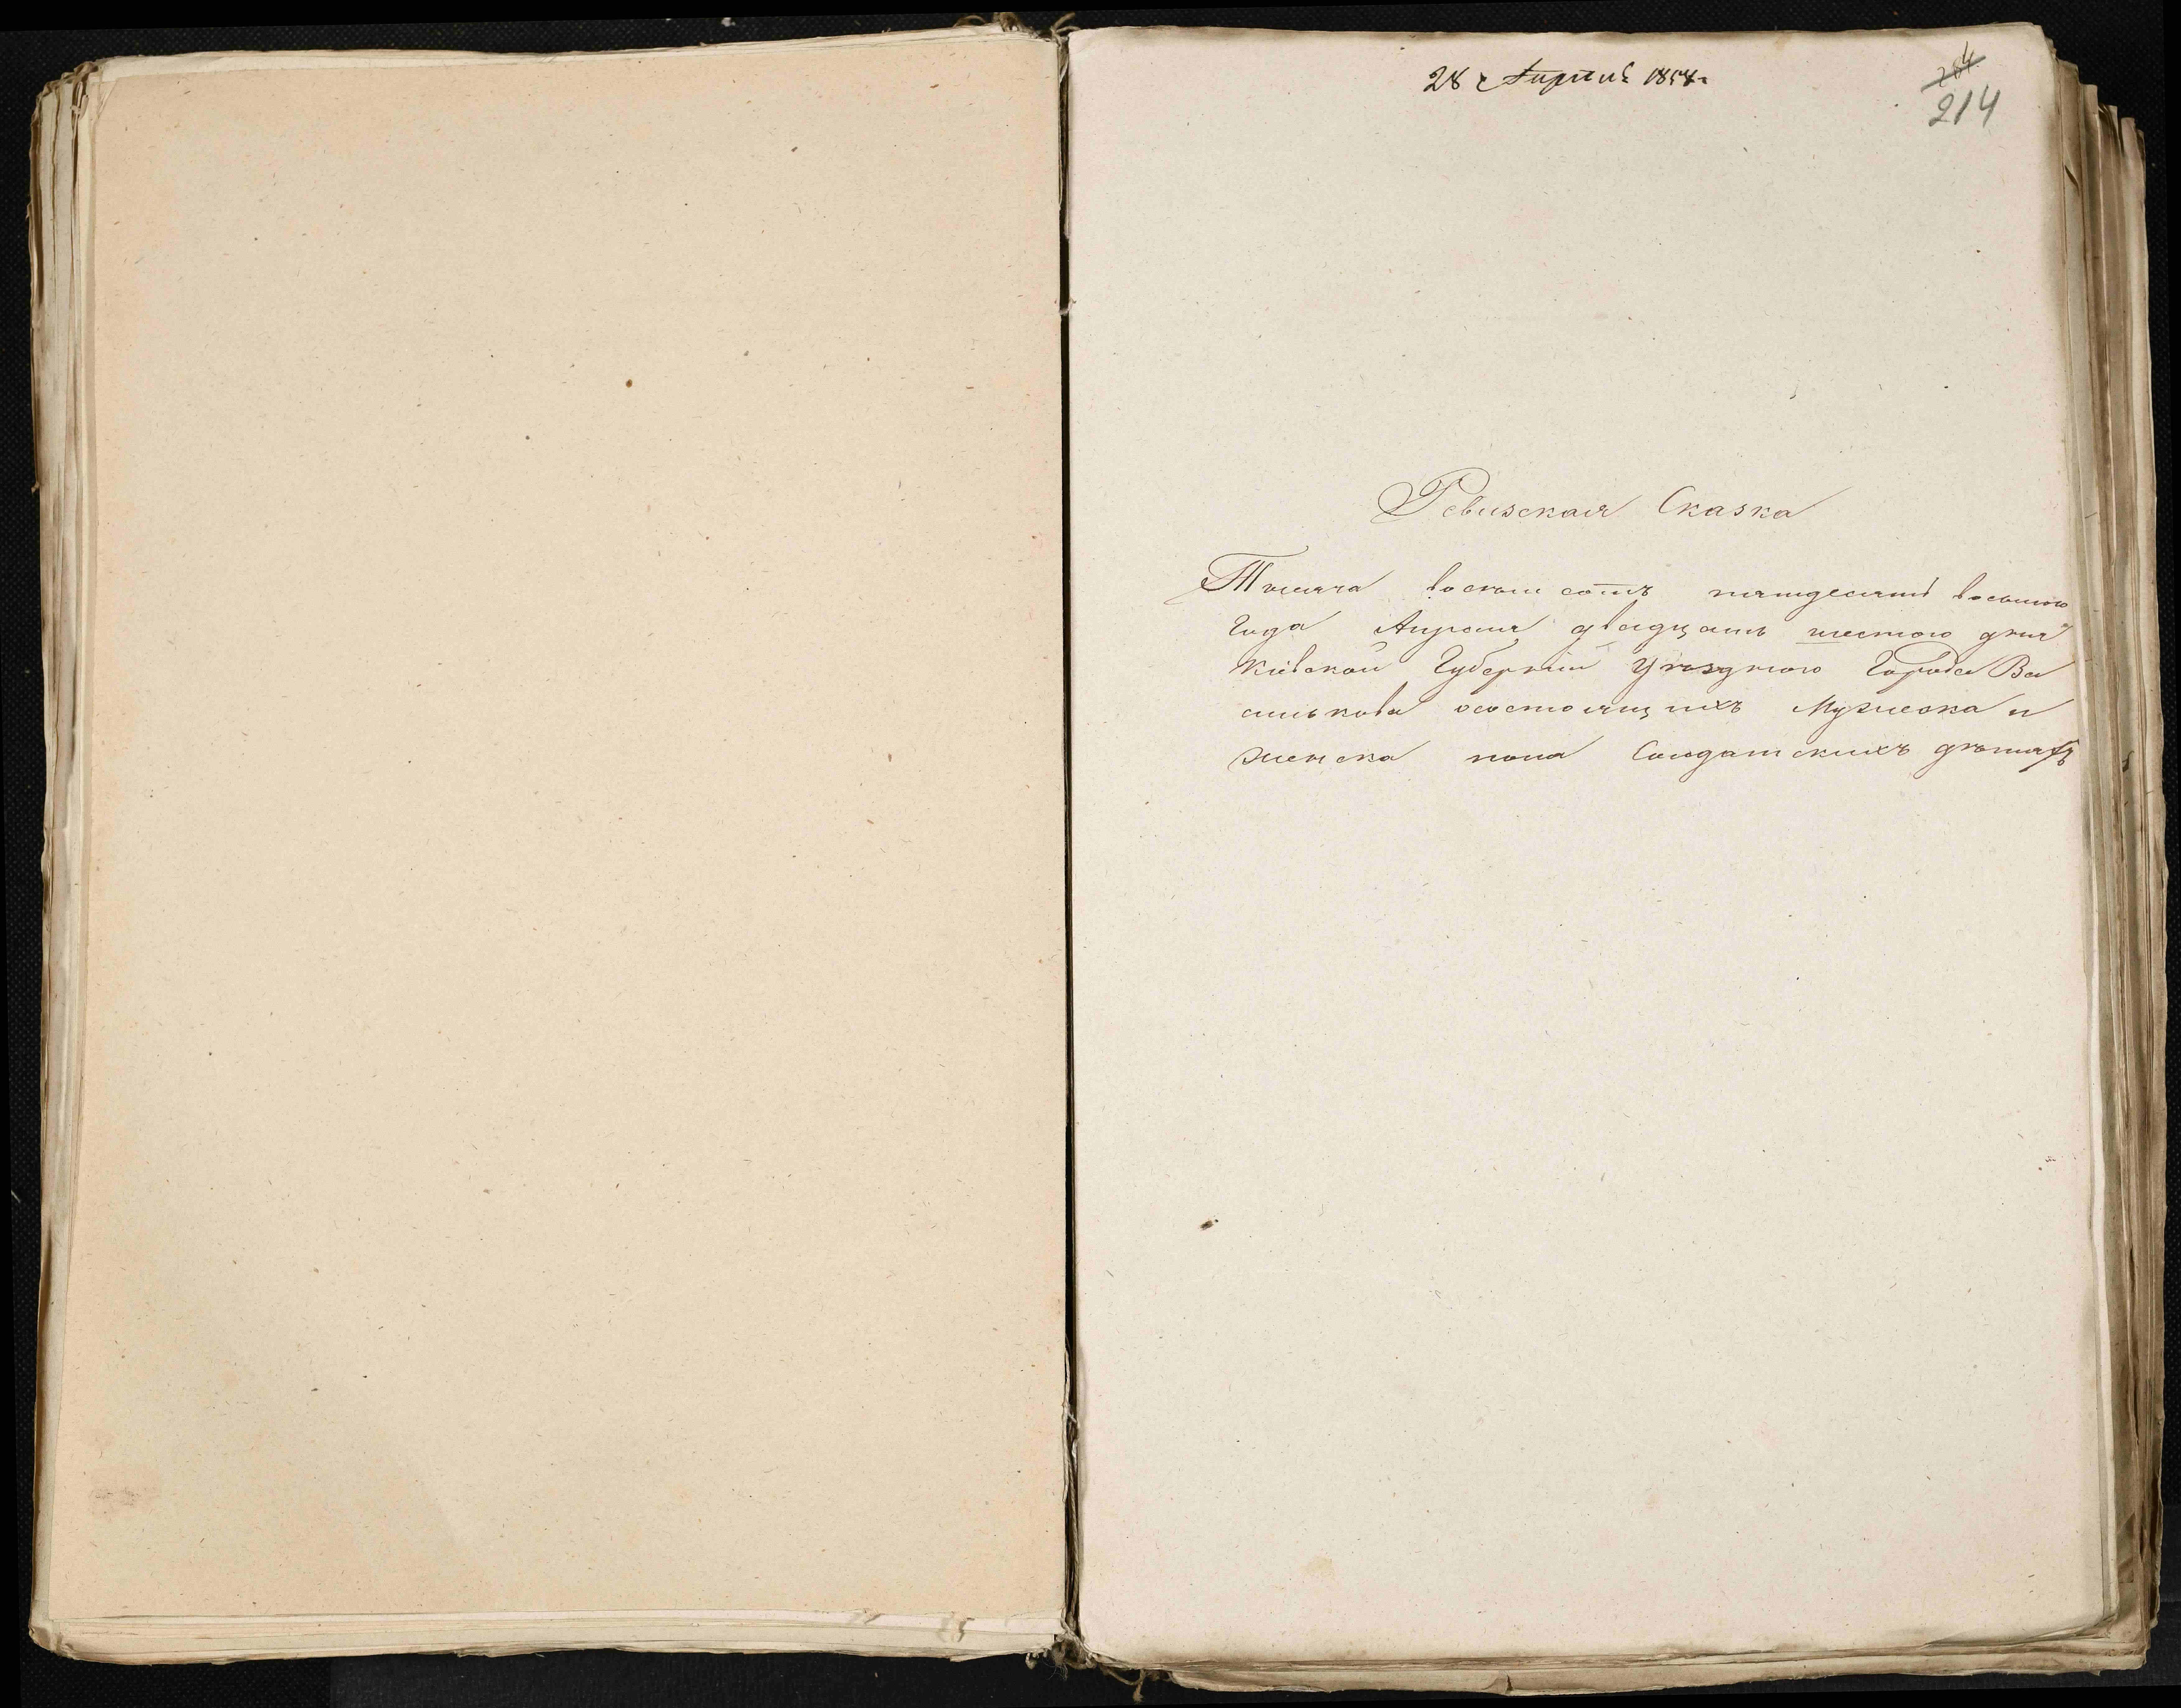 28 Апрѣля 1858 г.
264
214
Ревизская Сказка
Тысяча восемь сотъ пятидесятъ восьмого
Года Апреля двадцать шестого дня
Кіевской Губерніи Уѣзднаго Города Ва
силькова осостоящихъ Мужеска и
женска пола Солдатскихъ дѣтяхъ